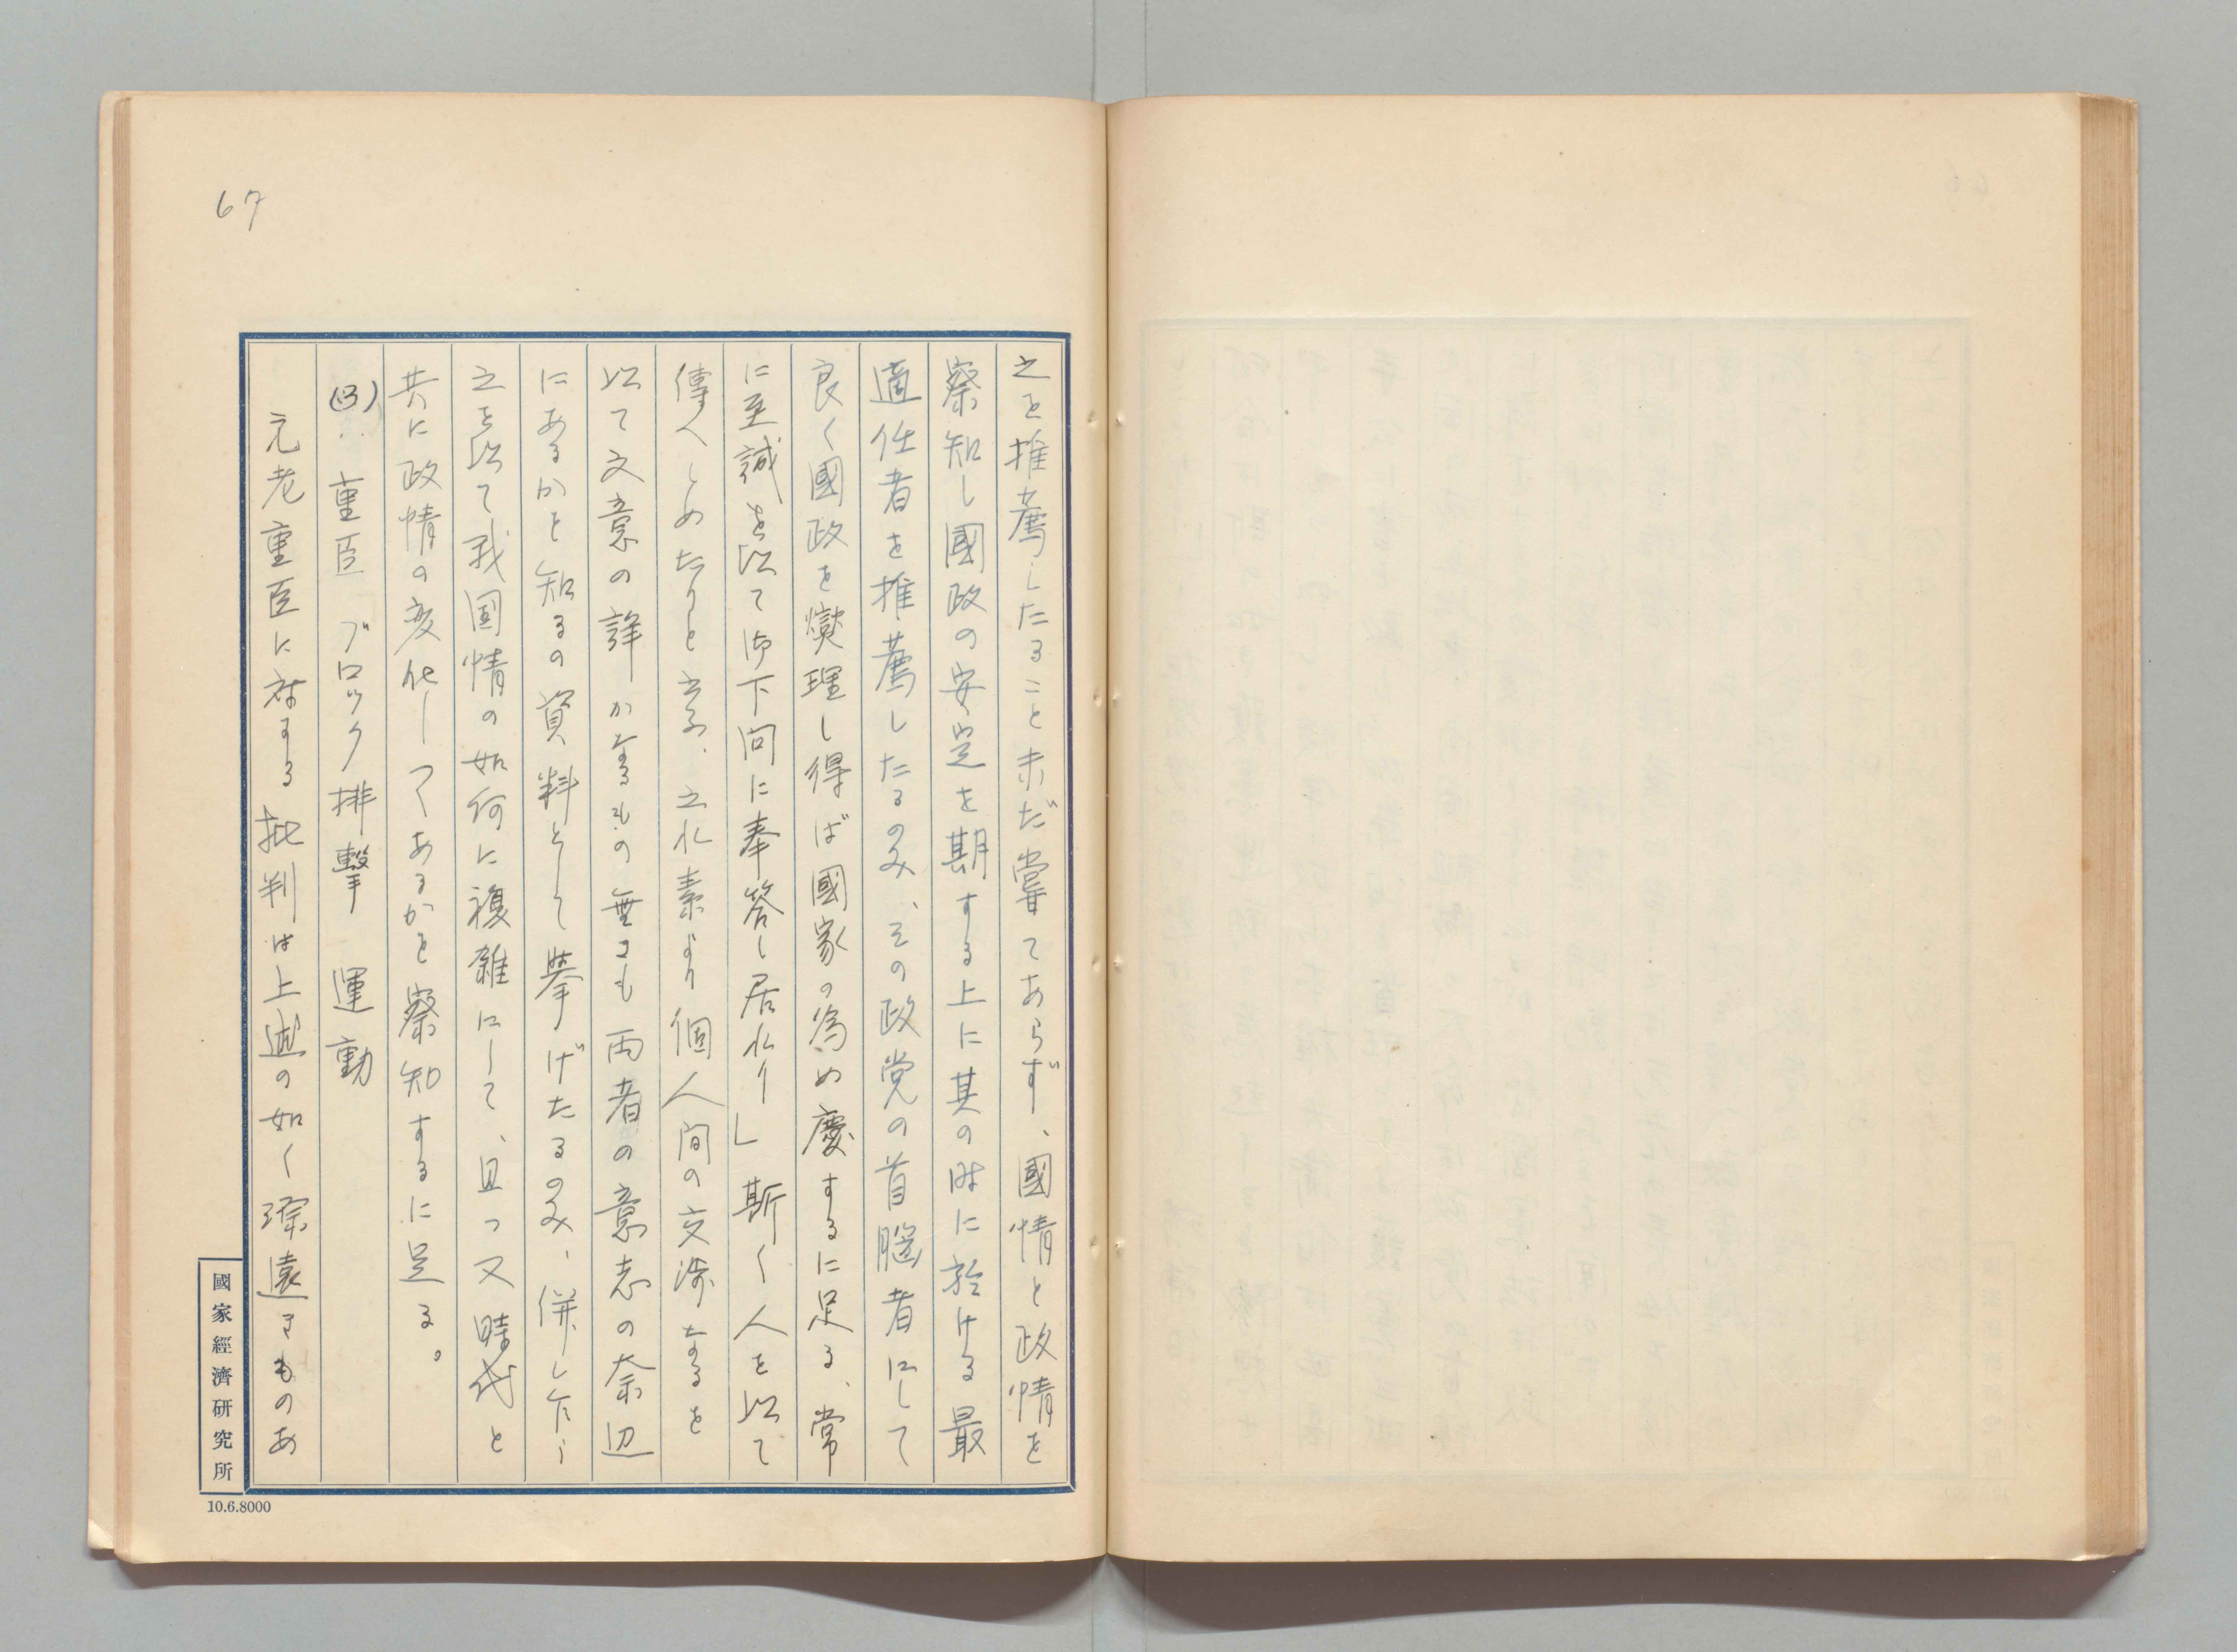 67
之を推薦したること未だ嘗てあらず、國情と政情を
察知し國政の安定を期する上に其の時に於ける最
適任者を推薦したるのみ、その政党の首腦者にして
良く國政を燮理し得ば國家の為め慶するに足る、常
に至誠を以て御下問に奉答し居れり」斯く人を以て
傳へしめたりと云ふ、之れ素より個人間の交渉なるを
以て文意の詳かなるもの無きも両者の意志の奈辺
にあるかを知るの資料として挙げたるのみ、併し乍ら
之を以て我国情の如何に複雑にして、且つ又時代と
共に政情の変化しつゝあるかを察知するに足る。
(3)、重臣ブロック排撃運動
元老重臣に対する批判は上述の如く深遠きものあ
國家經濟研究所
10.6.8000